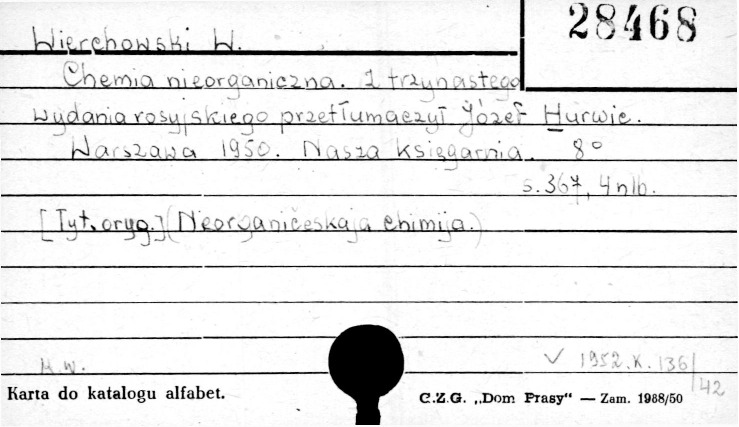 28468
Wierchowski W.
Chemia nieorganiczna. Z trzynastego
wydania rosyjskiego przetłumaczył Józef Hurwic.
Warszawa 1950. Nasza Księgarnia. 8°
s. 367, 4 nlb.
[Tyt. oryg.] (Neorganičeskaja chimija.)
M.W.
√ 1952.K.136/42
Karta do katalogu alfabet.
C.Z.G. „Dom Prasy" — Zam. 1988/50